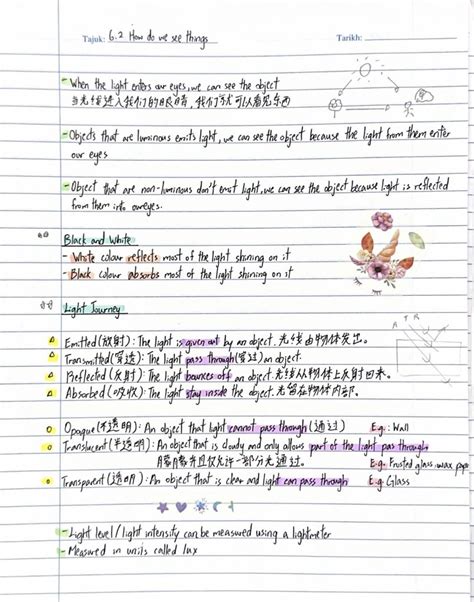 Tajuk: 6.2 How do we see things
Tarikh:
- When the light enters our eyes, we can see the object
当光线进入我们的眼睛，我们就可以看见东西
- Objects that are luminous emits light, we can see the object because the light from them enter
our eyes
- Object that are non-luminous don't emit light, we can see the object because light is reflected
from them into our eyes.
Black and White
- White colour reflects most of the light shining on it
- Black colour absorbs most of the light shining on it
Light Journey
A T R
Emitted (放射): The light is given out by an object. 光线由物体发出。
Transmitted (穿透): The light pass through (穿过) an object.
Reflected (反射): The light bounces off an object. 光线从物体上反射回来。
Absorbed (吸收): The light stay inside the object. 光留在物体内部。
Opaque (不透明): An object that light cannot pass through (通过) E.g.: Wall
Translucent (半透明): An object that is cloudy and only allows part of the light pass through
朦胧并且仅允许一部分光通过。 E.g. Frusted glass, wax paper
Transparent (透明): An object that is clear and light can pass through E.g. Glass
- Light level / light intensity can be measured using a lightmeter
- Measured in units called lux